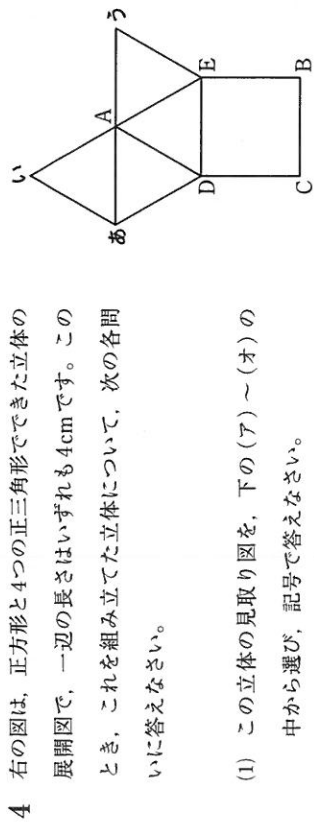 4 右の図は，正方形と4つの正三角形でできた立体の
展開図で，一辺の長さはいずれも4cmです。この
とき，これを組み立てた立体について，次の各問
いに答えなさい。
(1) この立体の見取り図を，下の(ア)～(オ)の
中から選び，記号で答えなさい。
い
あ
A
う
D
E
C
B